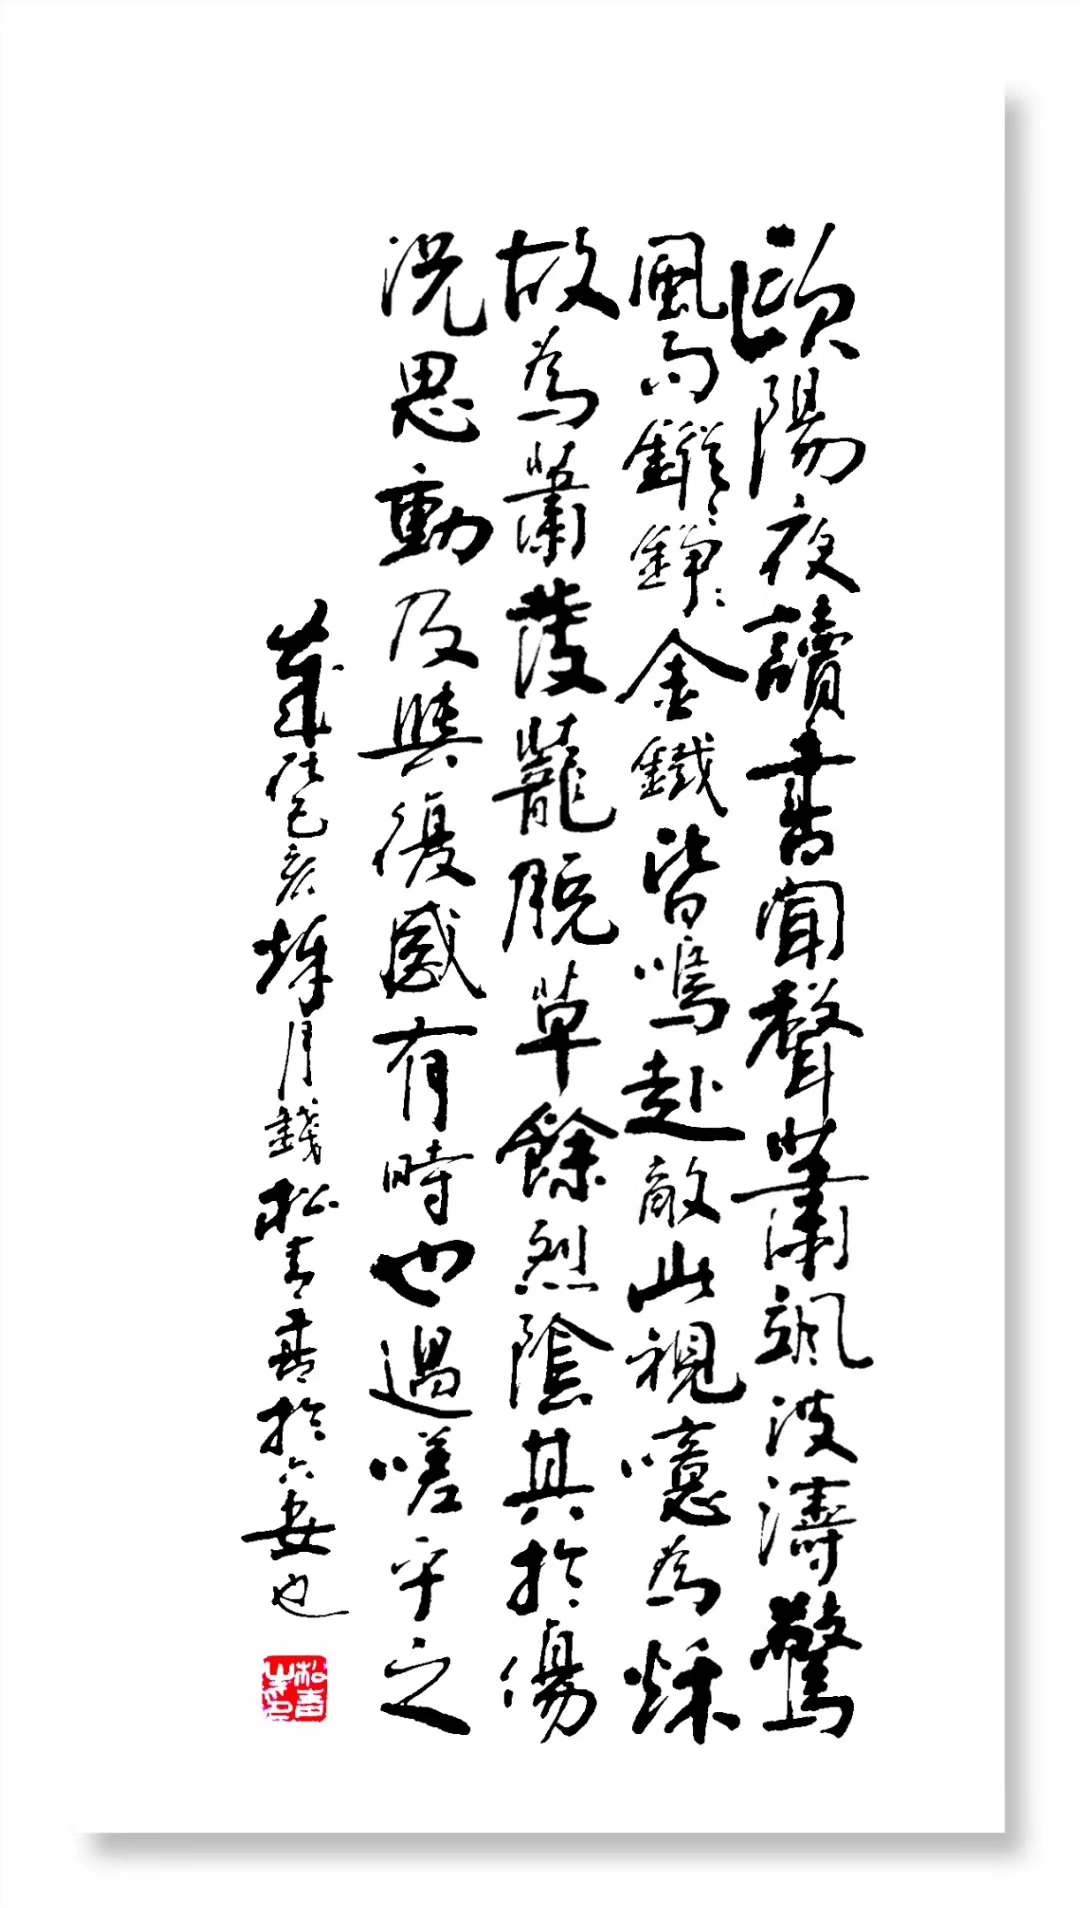 歐陽夜讀書聞聲蕭颯波濤驚
風雨鏦鏦錚錚金鐵皆鳴赴敵此視噫為秋
故為蕭蔆蘢脫草餘烈陰其於傷
況思動及與復感有時也過嗟乎之
歲在己亥 月錢松青書於六安也
松青